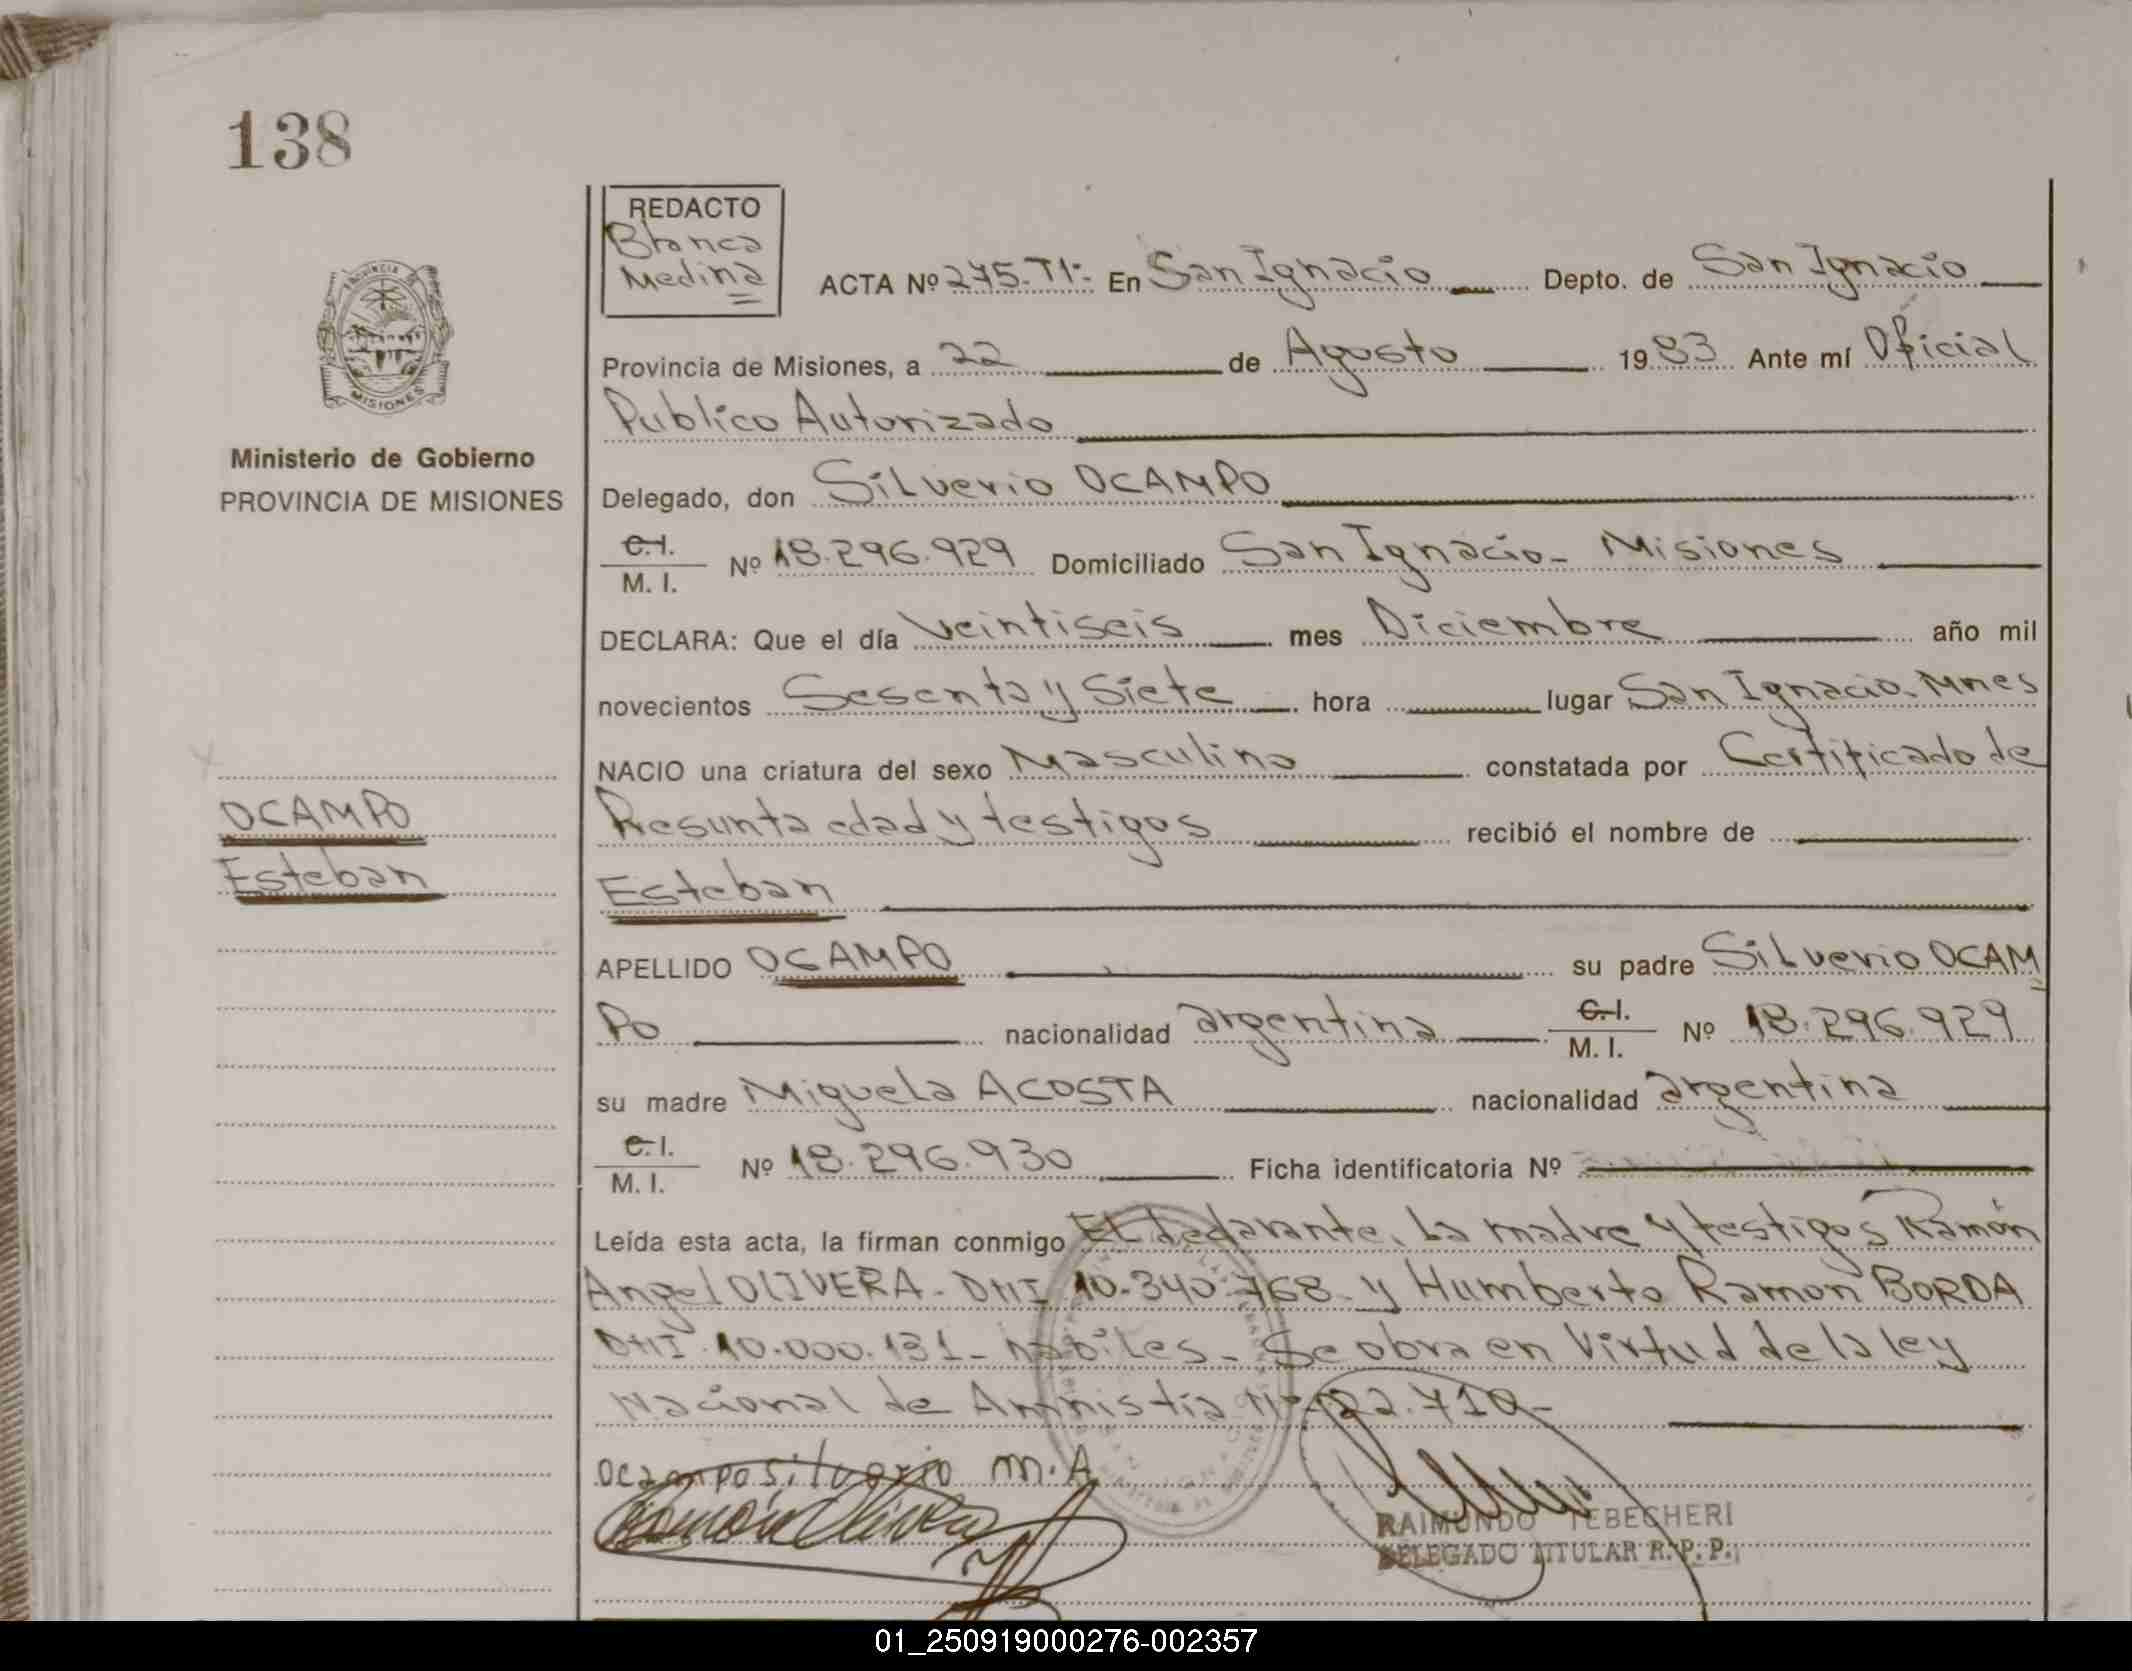 138
REDACTO
Blanca
Medina
ACTA Nº 275-T1: En San Ignacio Depto. de San Ignacio
Provincia de Misiones, a 22 de Agosto 1983 Ante mí Oficial
Publico Autorizado
Ministerio de Gobierno
PROVINCIA DE MISIONES
Delegado, don Silverio OCAMPO
C.I.
M. I. Nº 18.296.929 Domiciliado San Ignacio - Misiones
DECLARA: Que el día veintiseis mes Diciembre año mil
novecientos Sesenta y Siete hora lugar San Ignacio. Mnes
NACIO una criatura del sexo Masculino constatada por Certificado de
Presunta edad y testigos recibió el nombre de
OCAMPO
Esteban
Esteban
APELLIDO OCAMPO su padre Silverio OCAM
PO nacionalidad argentina C.I.
M. I. Nº 18.296.929
su madre Miguela ACOSTA nacionalidad argentina
C.I.
M. I. Nº 18.296.930 Ficha identificatoria Nº
Leída esta acta, la firman conmigo El declarante, La madre y testigos Ramón
Angel OLIVERA - DNI 10.340.768 - y Humberto Ramon BORDA
DNI. 10.000.131 - habiles - Se obra en Virtud de la ley
Nacional de Amnistia Nº 22.710 -
Ocampo silverio M.A
Ramón Olivera
RAIMUNDO TEBECHERI
DELEGADO TITULAR R. P. P.
PROVINCIA DE
MISIONES
01_250919000276-002357